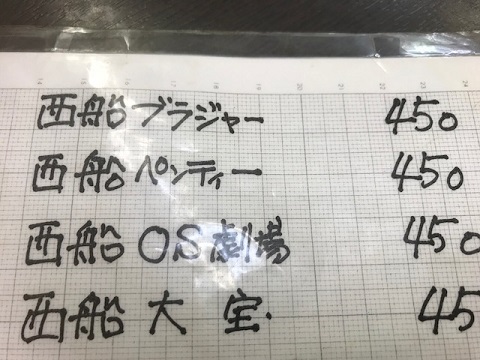 西船ブラジャー 450
西船ペンティー 450
西船OS劇場 450
西船大宝. 45